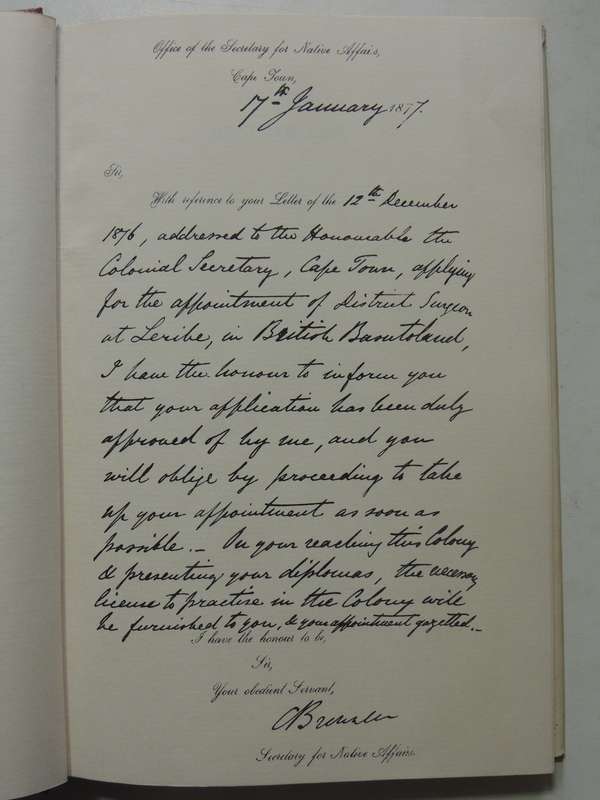 Office of the Secretary for Native Affairs,
Cape Town,
17th January 1877.
Sir,
With reference to your Letter of the 12th December
1876, addressed to the Honourable the
Colonial Secretary, Cape Town, applying
for the appointment of District Surgeon
at Leribe, in British Basutoland,
I have the honour to inform you
that your application has been duly
approved of by me, and you
will oblige by proceeding to take
up your appointment as soon as
possible. – On your reaching this Colony
& presenting your diplomas, the necessary
license to practise in the Colony will
be furnished to you, & your appointment gazetted. –
I have the honour to be,
Sir,
Your obedient Servant,
C Brownlee
Secretary for Native Affairs.